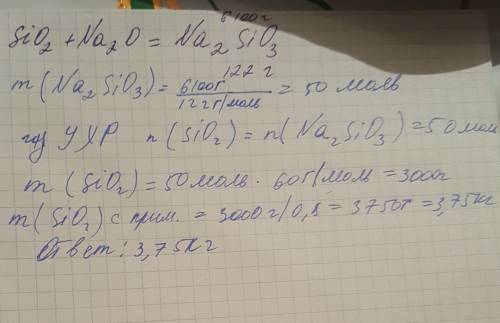 6100г
SiO₂ + Na₂O = Na₂SiO₃
122 г
m(Na₂SiO₃) = 6100г / 122г/моль = 50 моль
УХР n(SiO₂) = n(Na₂SiO₃) = 50 мол
m(SiO₂) = 50 моль · 60г/моль = 3000г
m(SiO₂) с прим. = 3000г/0,8 = 3750г = 3,75кг
Ответ: 3,75кг